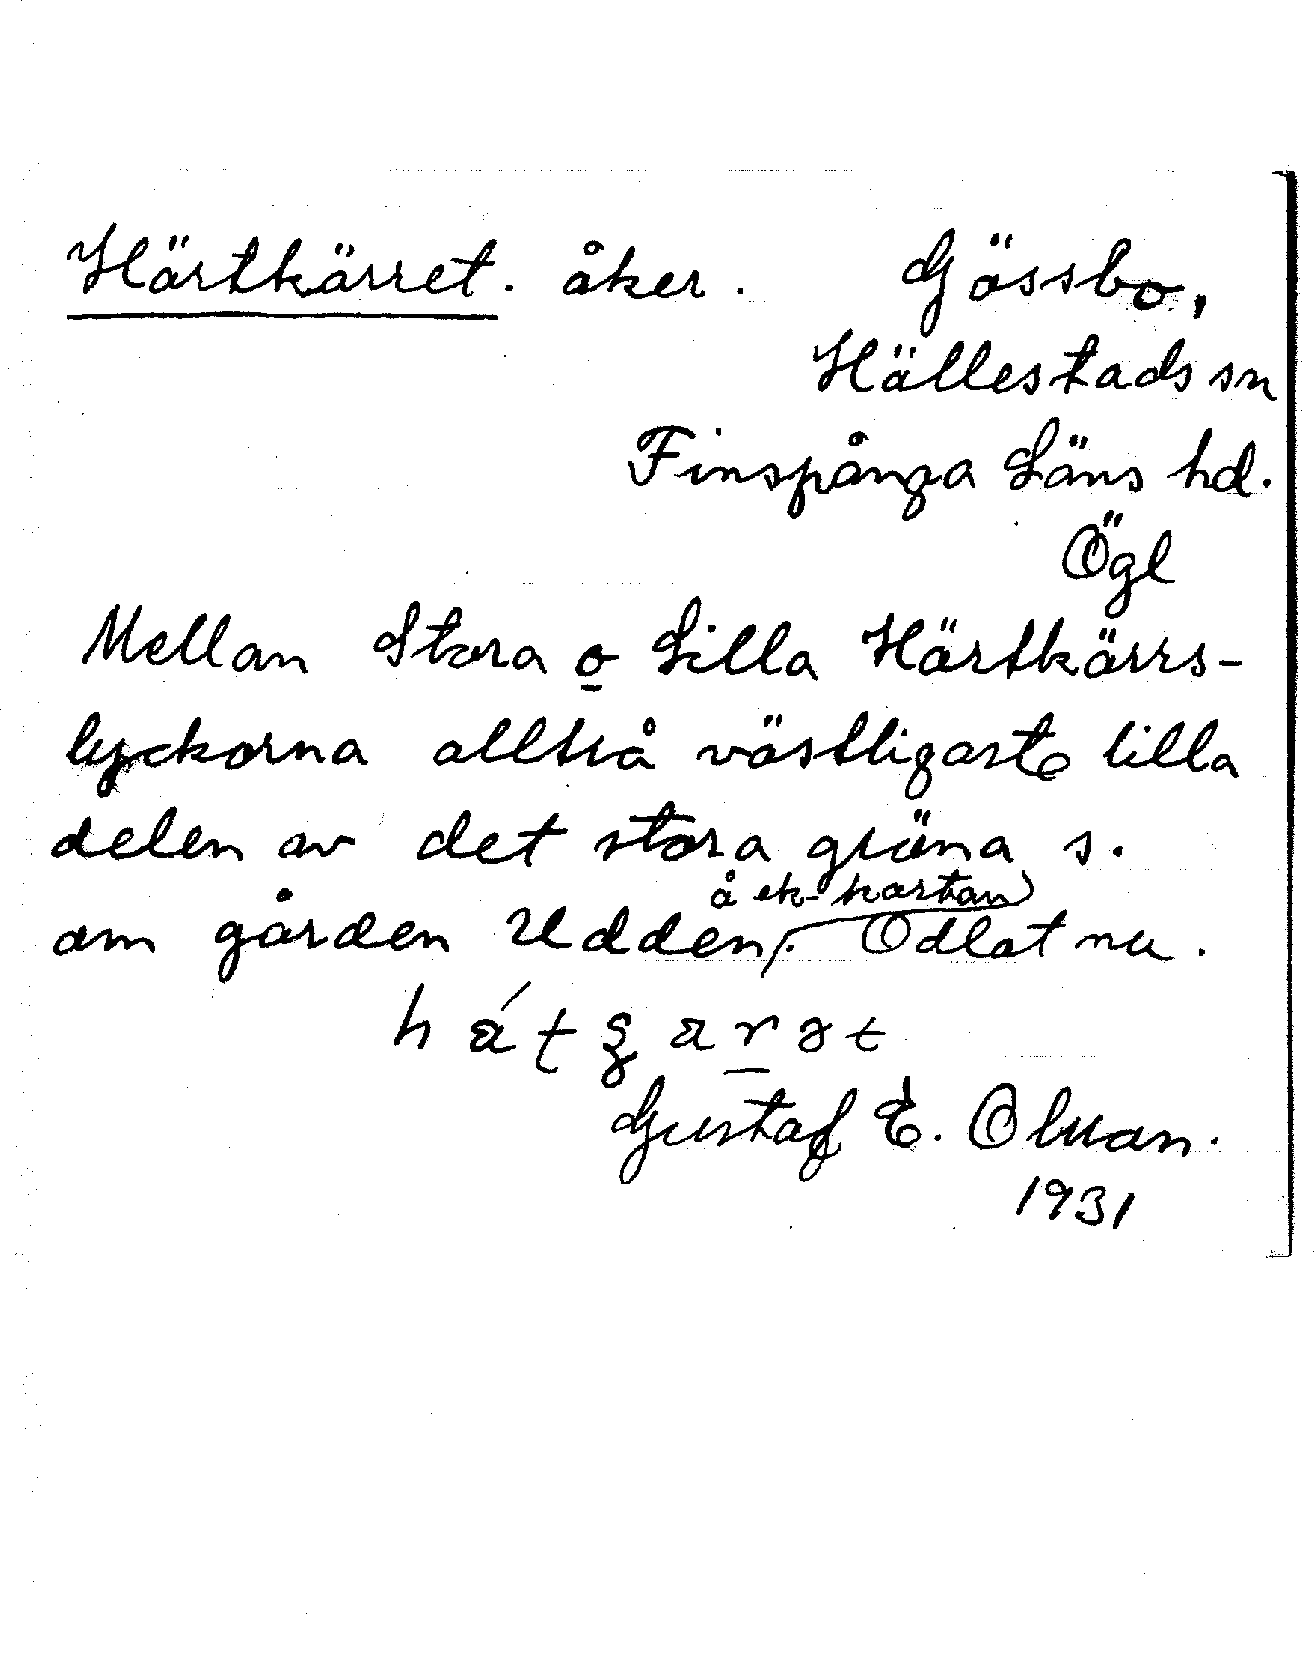 Härtkärret. åker. Gössbo,
Hällestads sn
Finspånga Läns hd.
Ögl
Mellan Stora o Lilla Härtkärrs-
lyckorna alltså västligaste lilla
delen av det stora gröna s.
å ek-kartan
om gården Udden. Odlat nu.
Gustaf E. Olman.
1931